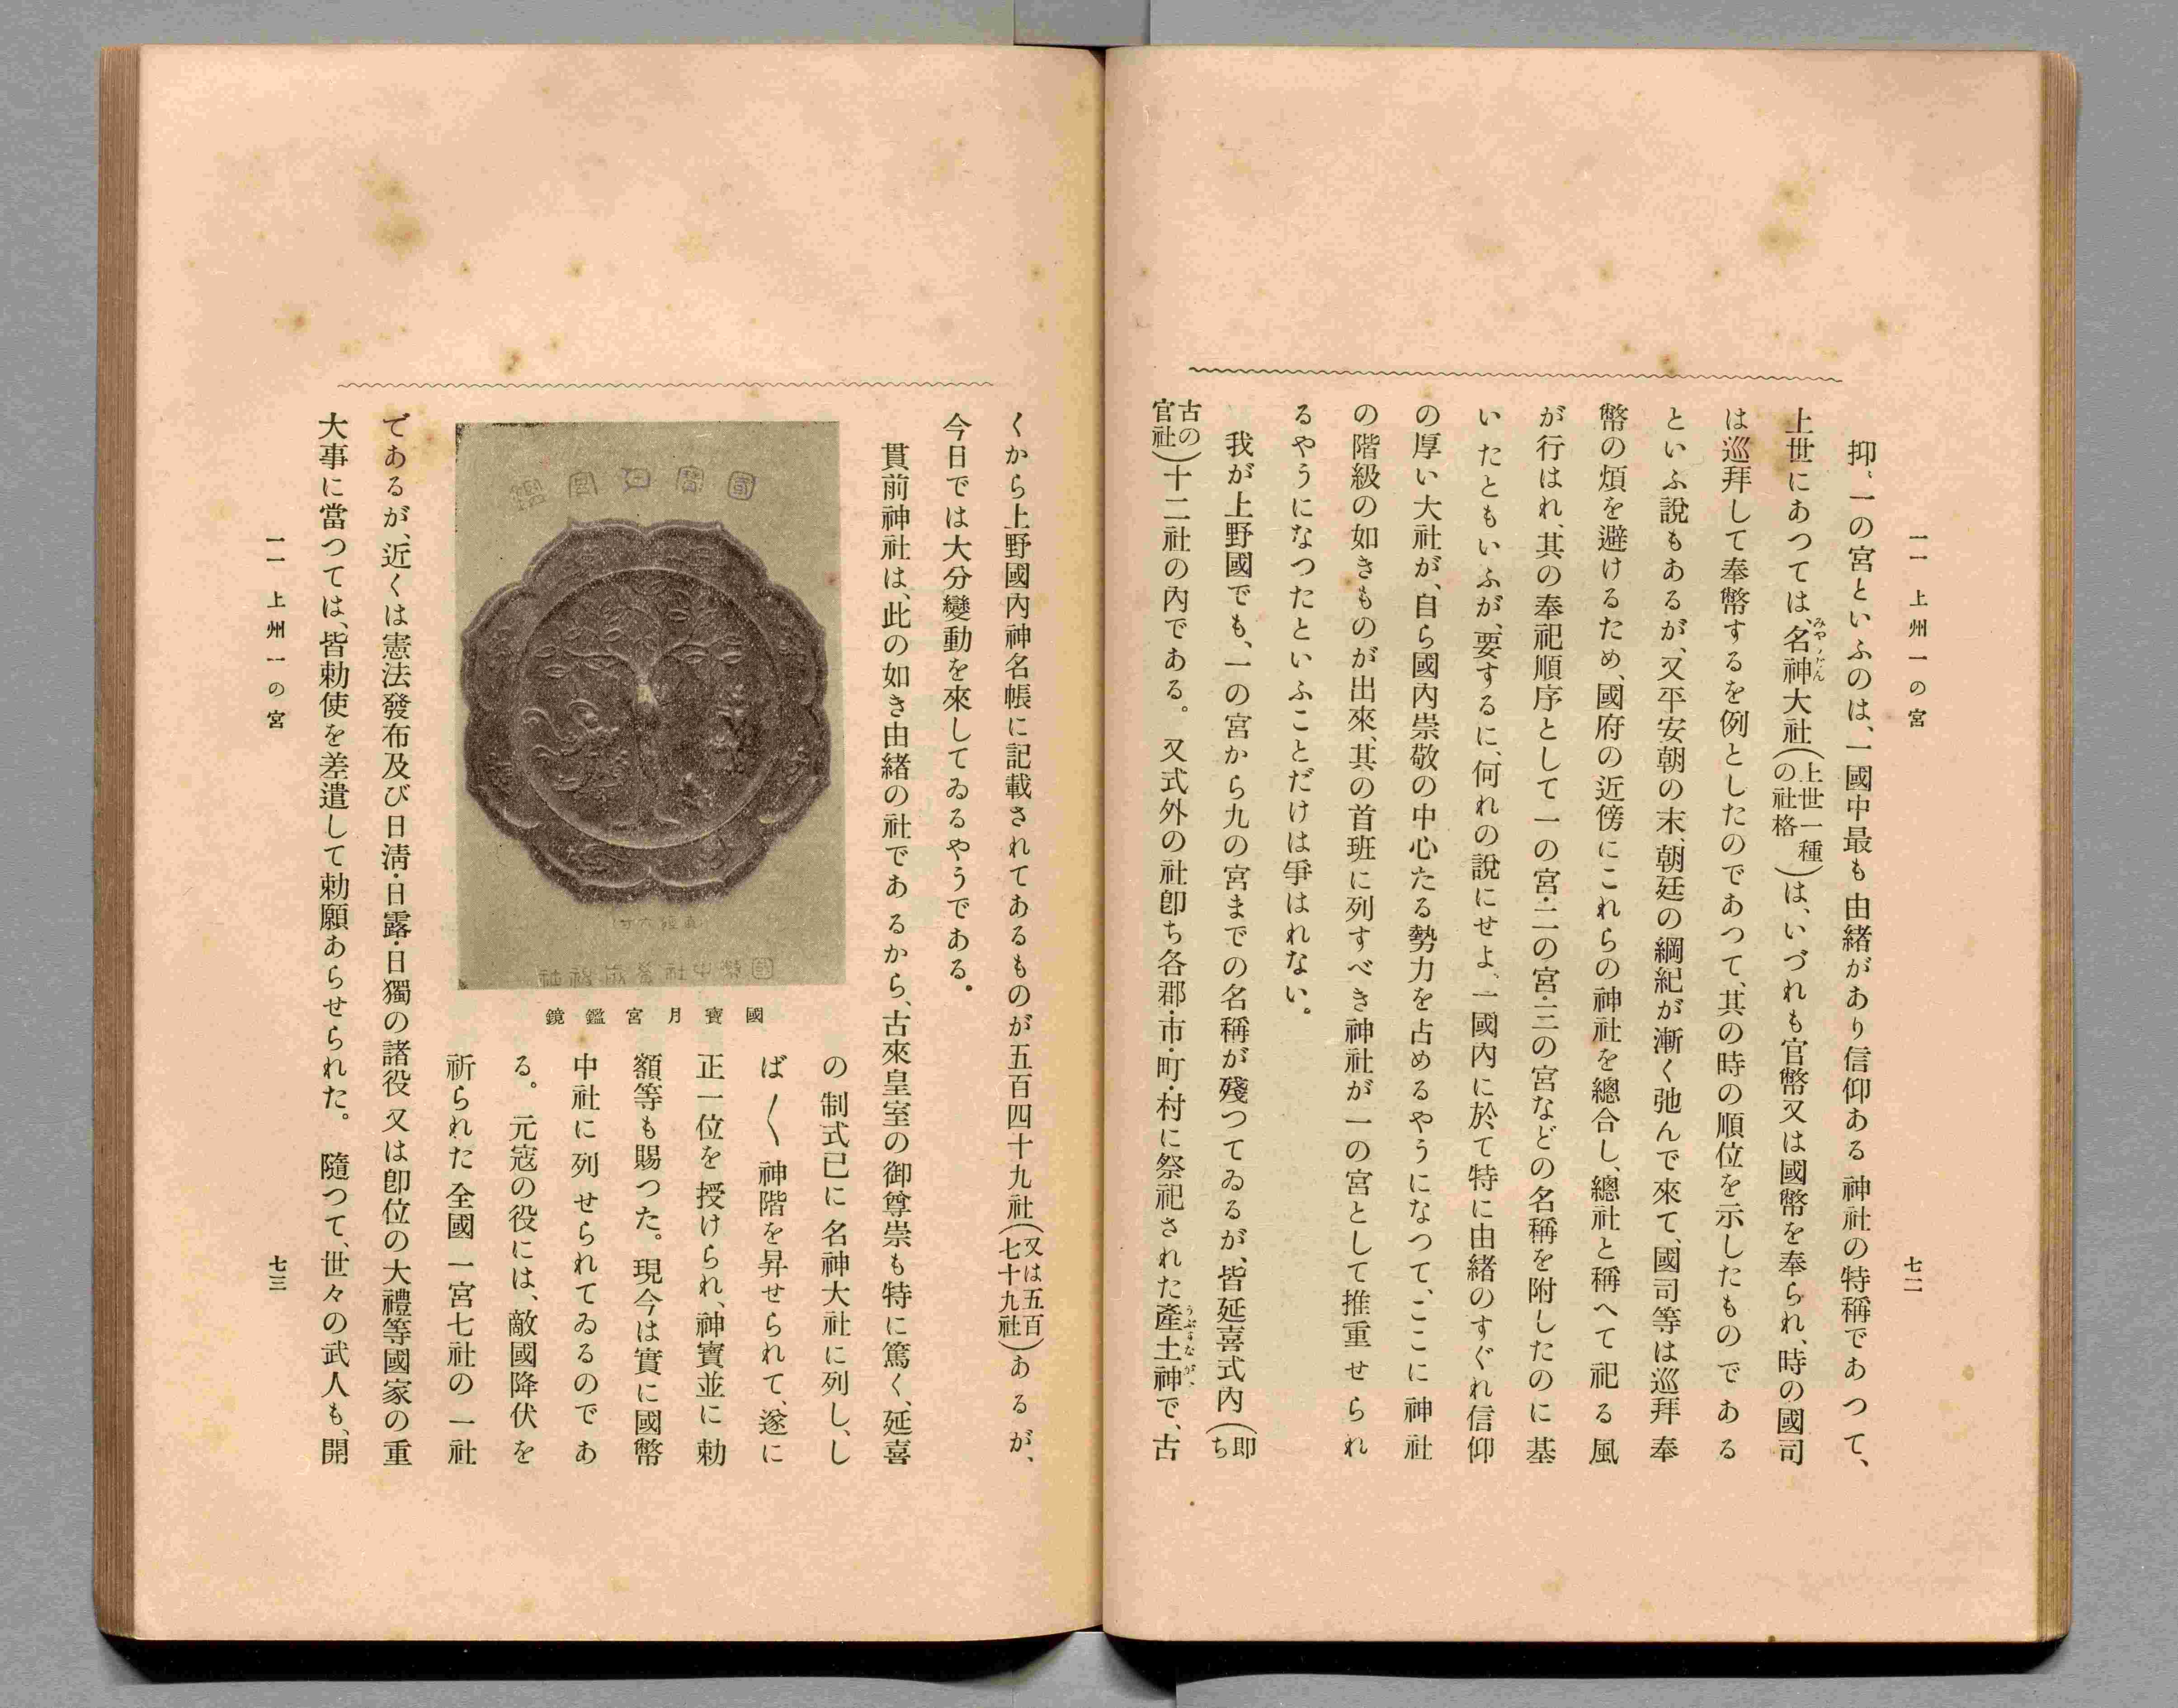 一一 上州一の宮
七二
抑〻一の宮といふのは、一國中最も由緒があり信仰ある神社の特稱であつて、
上世にあつては、名神大社(上世一種の社格)は、いづれも官幣又は國幣を奉られ、時の國司
は巡拜して奉幣するを例としたのであつて、其の時の順位を示したものである
といふ說もあるが、又平安朝の末、朝廷の綱紀が漸く弛んで來て、國司等は巡拜奉
幣の煩を避けるため、國府の近傍にこれらの神社を總合し、總社と稱へて祀る風
が行はれ、其の奉祀順序として一の宮・二の宮・三の宮などの名稱を附したのに基
いたともいふが、要するに、何れの說にせよ、一國內に於て特に由緒のすぐれ信仰
の厚い大社が、自ら國內崇敬の中心たる勢力を占めるやうになつて、ここに神社
の階級の如きものが出來、其の首班に列すべき神社が一の宮として推重せられ
るやうになつたといふことだけは爭はれない。
我が上野國でも、一の宮から九の宮までの名稱が殘つてゐるが、皆延喜式內(即ち
古の官社)十二社の內である。又式外の社卽ち各郡・市・町・村に祭祀された產土神で、古
くから上野國內神名帳に記載されてあるものが五百四十九社(又は五百七十九社)あるが、
今日では大分變動を來してゐるやうである。
貫前神社は、此の如き由緒の社であるから、古來皇室の御尊崇も特に篤く、延喜
の制式已に名神大社に列し、し
ば〳〵神階を昇せられて、遂に
正一位を授けられ、神寶並に勅
額等も賜つた。現今は實に國幣
中社に列せられてゐるのであ
る。元寇の役には、敵國降伏を
祈られた全國一宮七社の一社
であるが、近くは憲法發布及び日淸・日露・日獨の諸役又は卽位の大禮等國家の重
大事に當つては、皆勅使を差遣して勅願あらせられた。隨つて、世々の武人も、開
國寶月宮鑑鏡
一一 上州一の宮
七三